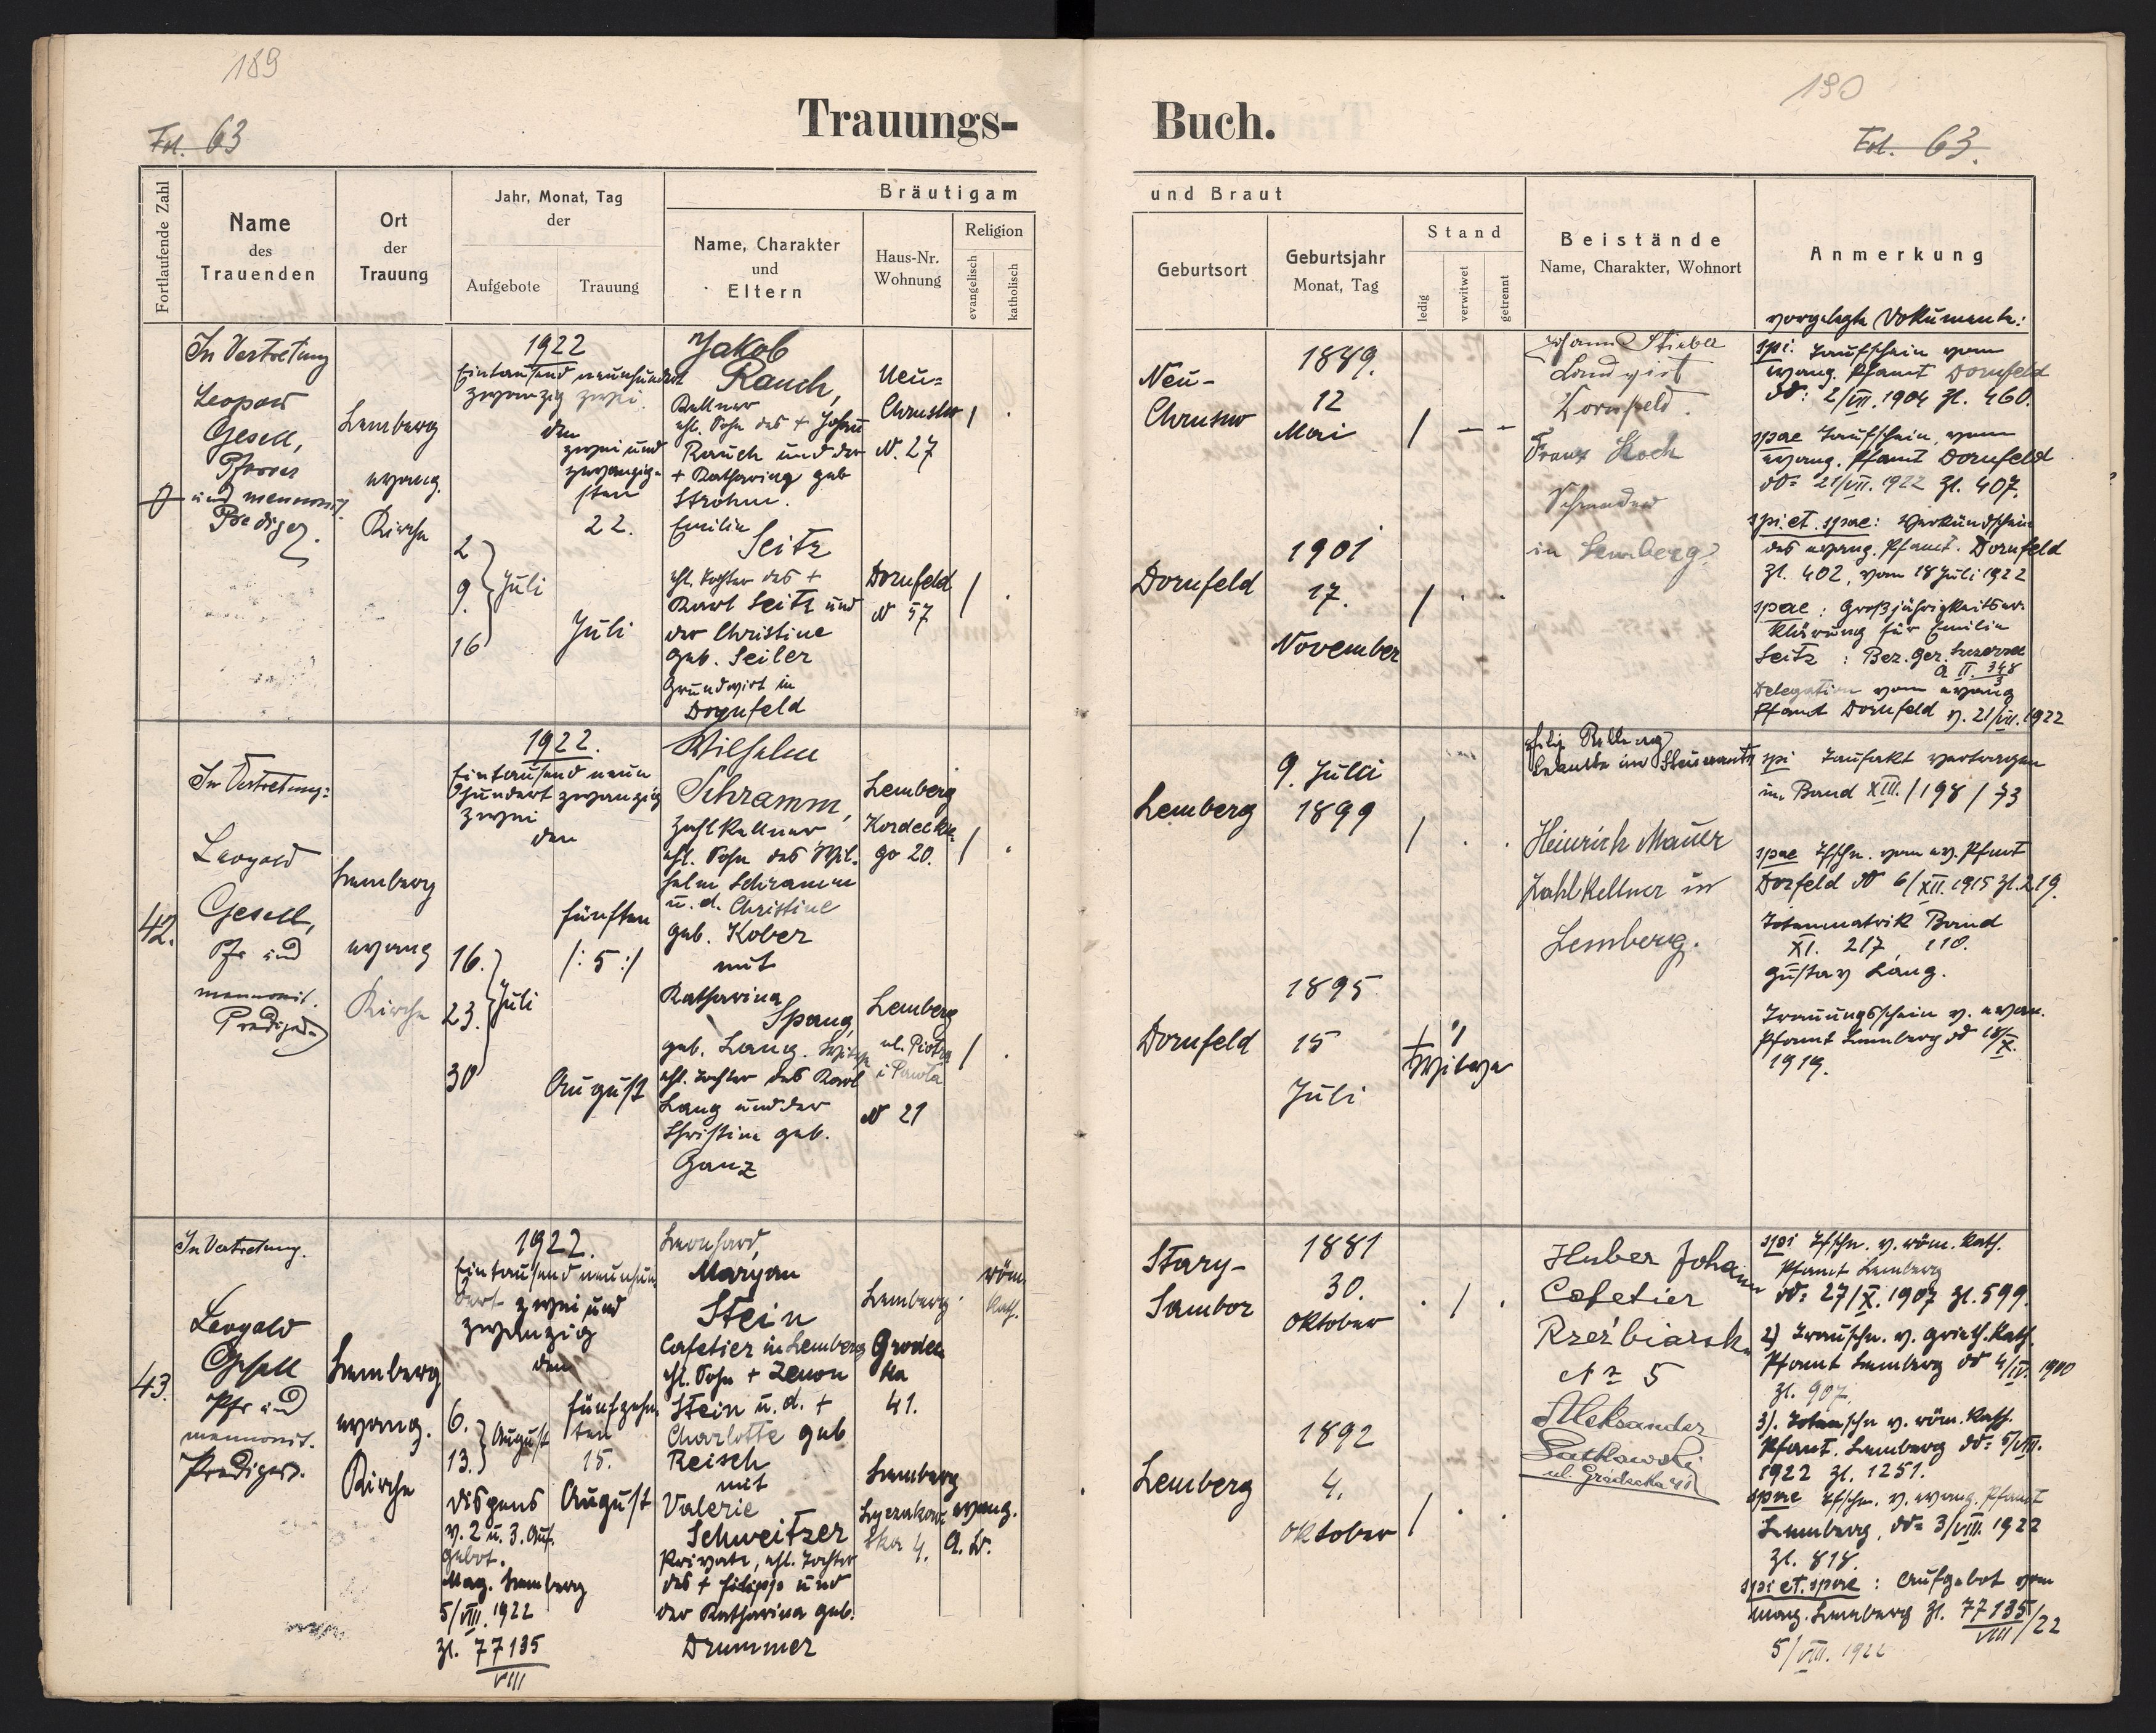 189
Fol. 63
Trauungs-
Fortlaufende Zahl
Name
des
Trauenden
Ort
der
Trauung
Jahr, Monat, Tag
der
Aufgebote
Trauung
Bräutigam
Name, Charakter
und
Eltern
Haus-Nr.
Wohnung
Religion
evangelisch
katholisch
In Vertretung
Leopold
Gesell,
Pfarrer
und mennonit.
Prediger.
Lemberg
evang.
Kirche
1922
Eintausend neunhundert
zwanzig zwei
den
zwei und
zwanzig-
sten
22.
2
9.
16
Juli
Juli
Jakob
Rauch,
Kellner
ehl. Sohn des + Johann
Rauch und der
+ Katharina geb
Strohm.
Emilie
Seitz
ehl. Tochter des +
Karl Seitz und
der Christine
geb. Seiler
Grundwirt in
Dornfeld
Neu-
Chrusno
N. 27
Dornfeld
N 57
42.
In Vertretung:
Leopold
Gesell,
Pfr und
mennonit.
Prediger
Lemberg
evang
Kirche
1922.
Eintausend neun
hundert zwanzig
zwei
den
fünften
/: 5 :/
16.
23.
30
Juli
August
Wilhelm
Schramm,
Zahlkellner
ehl. Sohn des Wil-
helm Schramm
u. d. Christine
geb. Kober
mit
Katharina
Spang,
geb. Lang. Witwe
ehl. Tochter des Karl
Lang und der
Christine geb.
Ganz
Lemberg
Kordeckie
go 20.
Lemberg
ul. Piotra
i Pawła
N 21
43.
In Vertretung.
Leopold
Gesell
Pfr und
mennonit.
Prediger.
Lemberg
evang.
Kirche
1922.
Eintausend neunhun
dert zwei und
zwanzig
den
fünfzehn
ten
15.
August
6.
13.
August
Dispens
v. 2 u. 3. Auf-
gebot.
Mag. Lemberg
5/VIII. 1922
Zl. 77135
VIII
Leonhard,
Maryan
Stein
Cafetier in Lemberg
ehl. Sohn + Zenon
Stein u. d. +
Charlotte geb
Reisch
mit
Valerie
Schweitzer
Private, ehl. Tochter
des + Filipp und
der Katharina geb.
Drummer
Lemberg
Grodec
ka
41.
Lemberg
Łyczakow
ska 4.
röm.
kath.
evang.
A. B.
190
Fol. 63.
Buch.
und Braut
Geburtsort
Geburtsjahr
Monat, Tag
Stand
ledig
verwitwet
getrennt
Beistände
Name, Charakter, Wohnort
Anmerkung
Neu-
Chrusno
1889.
12
Mai
Dornfeld
1901
17.
November
Johann Stieber
Landwirt
Dornfeld.
Franz Koch
in Lemberg
vorgelegte Dokumente:
spi: Taufschein vom
evang. Pfamt Dornfeld
dd: 2/VII. 1904 Zl. 460.
spae Taufschein vom
evang. Pfamt Dornfeld
dd= 21/VII. 1922 Zl. 407.
spi. et. spae: Verkündschein
des evang. Pfamt. Dornfeld
Zl. 402, vom 18 Juli 1922
spae: Großjährigkeitser-
klärung für Emilie
Seitz : Bez. Ger.
Delegation vom evang
Pfamt Dornfeld v. 21/VII. 1922
Lemberg
9. Julii
1899
Dornfeld
1895
15
Juli
Witwe
Heinrich Mauer
Zahlkellner in
Lemberg.
spi Taufakt vertragen
im Band XIII. / 198 / 73
spae Tfschn. vom ev. Pfamt
Dorfeld dd 6/XII. 1915 Zl. 219.
Totenmatrik Band
XI. 217, 110.
Gustav Lang.
Trauungsschein v. evan.
Pfamt Lemberg dd 18/X.
1919.
Stary-
Sambor
1881
30.
Oktober
Lemberg
1892
4.
Oktober
Huber Johann
Cafetier
Rzeźbiarska
Nr 5
Aleksander
ul. Gródecka 41
spi Tfschn. v. röm. kath.
Pfamt Lemberg
dd= 27/X. 1907 Zl. 599.
2) Trauschn. v. griech. kath.
Pfamt Lemberg dd 4/IV. 1910
Zl. 907.
3). Totenschn v. röm. kath.
Pfamt. Lemberg dd= 5/VIII.
1922 Zl. 1251.
spae Tfschn. v. evang. Pfamt
Lemberg, dd= 3/VIII. 1922
Zl. 818.
spi et. spae : Aufgebot vom
Mag. Lemberg Zl. 77135/22
VIII
5/VIII. 1922